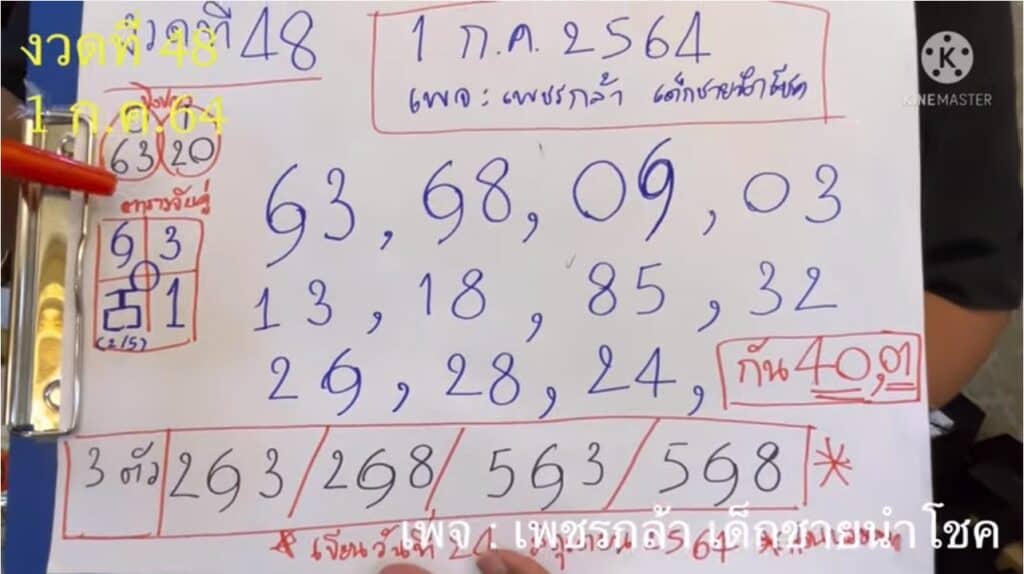 งวดที่ 48
งวดที่ 48
1 ก.ค. 2564
เพจ : เพชรกล้า เด็กชายนำโชค
1 ก.ค.64
KINEMASTER
63 20
ตารางจับคู่
9 3
1
(2/5)
93, 98, 09, 03
13, 18, 85, 32
29, 28, 24,
กัน 40,01
3 ตัว 293 / 298 / 593 / 598 *
* เขียนวันที่ 24 มิถุนายน 2564 *
เพจ : เพชรกล้า เด็กชายนำโชค